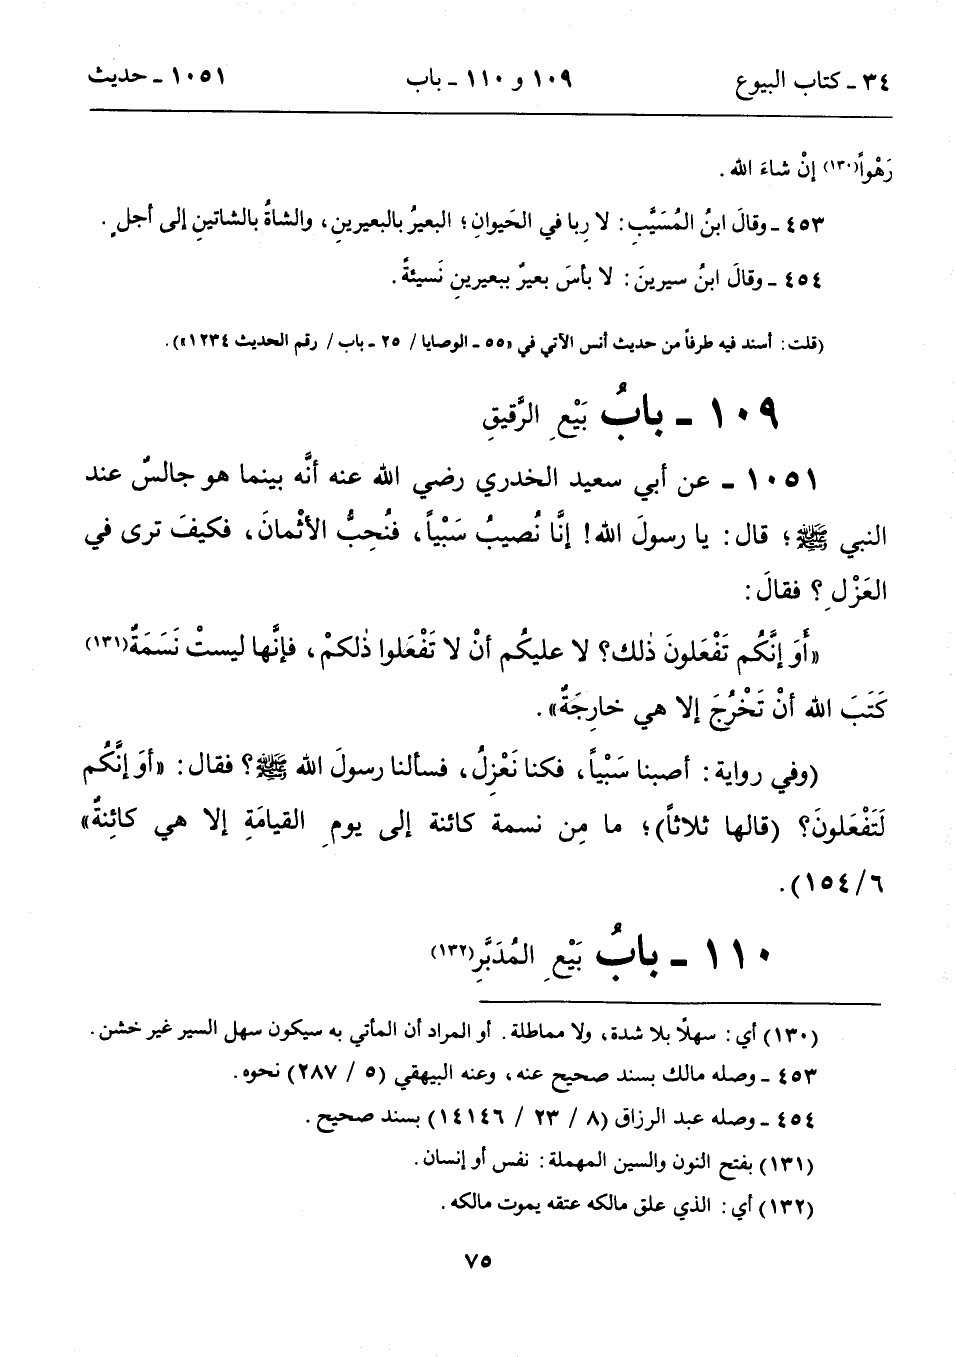 ٣٤ ـ كتاب البيوع ١٠٩ و ١١٠ ـ باب ١٠٥١ ـ حديث
رَهْواً(١٣٠) إنْ شاءَ الله .
٤٥٣ ـ وقالَ ابنُ المُسَيَّبِ : لا رِبا في الحَيوانِ ؛ البعيرُ بالبعيرينِ ، والشاةُ بالشاتينِ إلى أجلٍ .
٤٥٤ ـ وقالَ ابنُ سيرينَ : لا بأسَ بعيرٌ ببعيرينِ نَسيئةً .
(قلت : أسند فيه طرفاً من حديث أنس الآتي في «٥٥ ـ الوصايا / ٢٥ ـ باب / رقم الحديث ١٢٣٤») .
١٠٩ ـ بابُ بَيْعِ الرَّقيقِ
١٠٥١ ـ عن أبي سعيد الخدري رضي الله عنه أنَّه بينما هو جالسٌ عند
النبي ﷺ ؛ قال : يا رسولَ الله ! إنَّا نُصيبُ سَبْياً ، فنُحِبُّ الأثْمانَ ، فكيفَ ترى في
العَزْلِ ؟ فقالَ :
«أَوَ إنَّكُم تَفْعَلونَ ذٰلك؟ لا عليكُم أنْ لا تَفْعَلوا ذٰلكمْ ، فإنَّها ليستْ نَسَمَةٌ(١٣١)
كَتَبَ الله أنْ تَخْرُجَ إلا هي خارِجَةٌ» .
(وفي رواية : أصبنا سَبْياً ، فكنا نَعْزِلُ ، فسألنا رسولَ الله ﷺ ؟ فقال : «أوَ إنَّكُم
لَتَفْعَلونَ؟ (قالها ثلاثاً) ؛ ما مِن نسمة كائنة إلى يومِ القيامَةِ إلا هي كائِنةٌ»
٦/ ١٥٤) .
١١٠ ـ بابُ بَيْعِ المُدَبَّرِ(١٣٢)
(١٣٠) أي : سهلًا بلا شدة ، ولا مماطلة . أو المراد أن المأتي به سيكون سهل السير غير خشن .
٤٥٣ ـ وصله مالك بسند صحيح عنه ، وعنه البيهقي (٥ / ٢٨٧) نحوه .
٤٥٤ ـ وصله عبد الرزاق (٨ / ٢٣ / ١٤١٤٦) بسند صحيح .
(١٣١) بفتح النون والسين المهملة : نفس أو إنسان .
(١٣٢) أي : الذي علق مالكه عتقه يموت مالكه .
٧٥